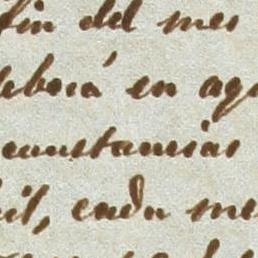 fin del mes
deberá en ag
constancias
il, cada me